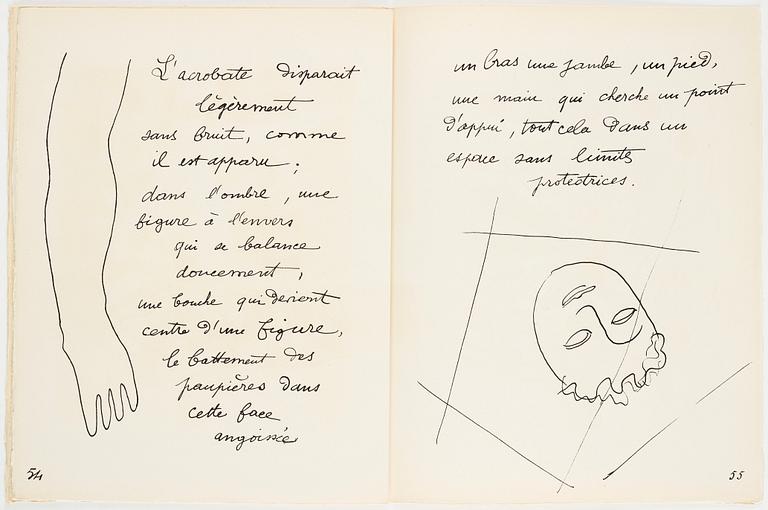 L'acrobate disparait
légèrement
sans bruit, comme
il est apparu ;
dans l'ombre, une
figure à l'envers
qui se balance
doucement,
une bouche qui devient
centre d'une figure,
le battement des
paupières dans
cette face
angoissée
54
un bras une jambe, un pied,
une main qui cherche un point
d'appui, tout cela dans un
espace sans limites
protectrices.
55